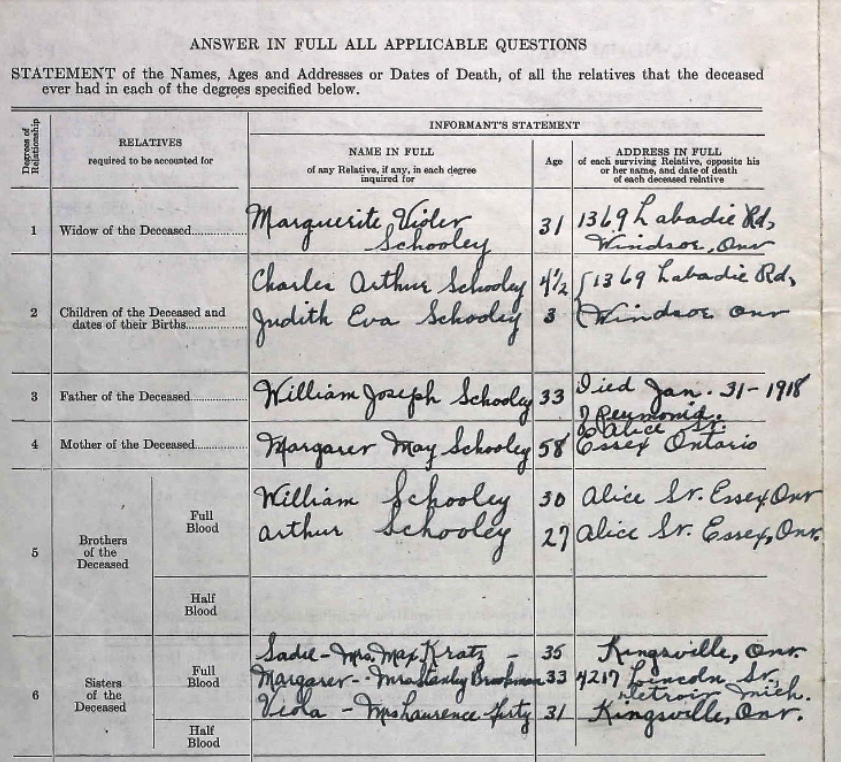 ANSWER IN FULL ALL APPLICABLE QUESTIONS
STATEMENT of the Names, Ages and Addresses or Dates of Death, of all the relatives that the deceased
ever had in each of the degrees specified below.
Degrees of Relationship
RELATIVES
required to be accounted for
INFORMANT'S STATEMENT
NAME IN FULL
of any Relative, if any, in each degree
inquired for
Age
ADDRESS IN FULL
of each surviving Relative, opposite his
or her name, and date of death
of each deceased relative
1 Widow of the Deceased Marguerite Violer 31 1369 Labadie Rd,
Schooley Windsor, Ont
2 Children of the Deceased and
dates of their Births
Charles Arthur Schooley 4½ 1369 Labadie Rd,
Judith Eva Schooley 3 Windsor Ont
3 Father of the Deceased William Joseph Schooley 33 Died Jan. 31-1918
Pneumonia.
4 Mother of the Deceased Margaret May Schooley 58 Alice St.
Essex Ontario
5 Brothers
of the
Deceased
Full
Blood
William Schooley 30 Alice St. Essex, Ont
Arthur Schooley 27 Alice St. Essex, Ont.
Half
Blood
6 Sisters
of the
Deceased
Full
Blood
Sadie - Mrs. Max Kratz - 35 Kingsville, Ont.
Margaret - Mrs Stanley Brookman 33 4217 Lincoln St.
Detroit Mich.
Viola - Mrs Laurence 31 Kingsville, Ont.
Half
Blood